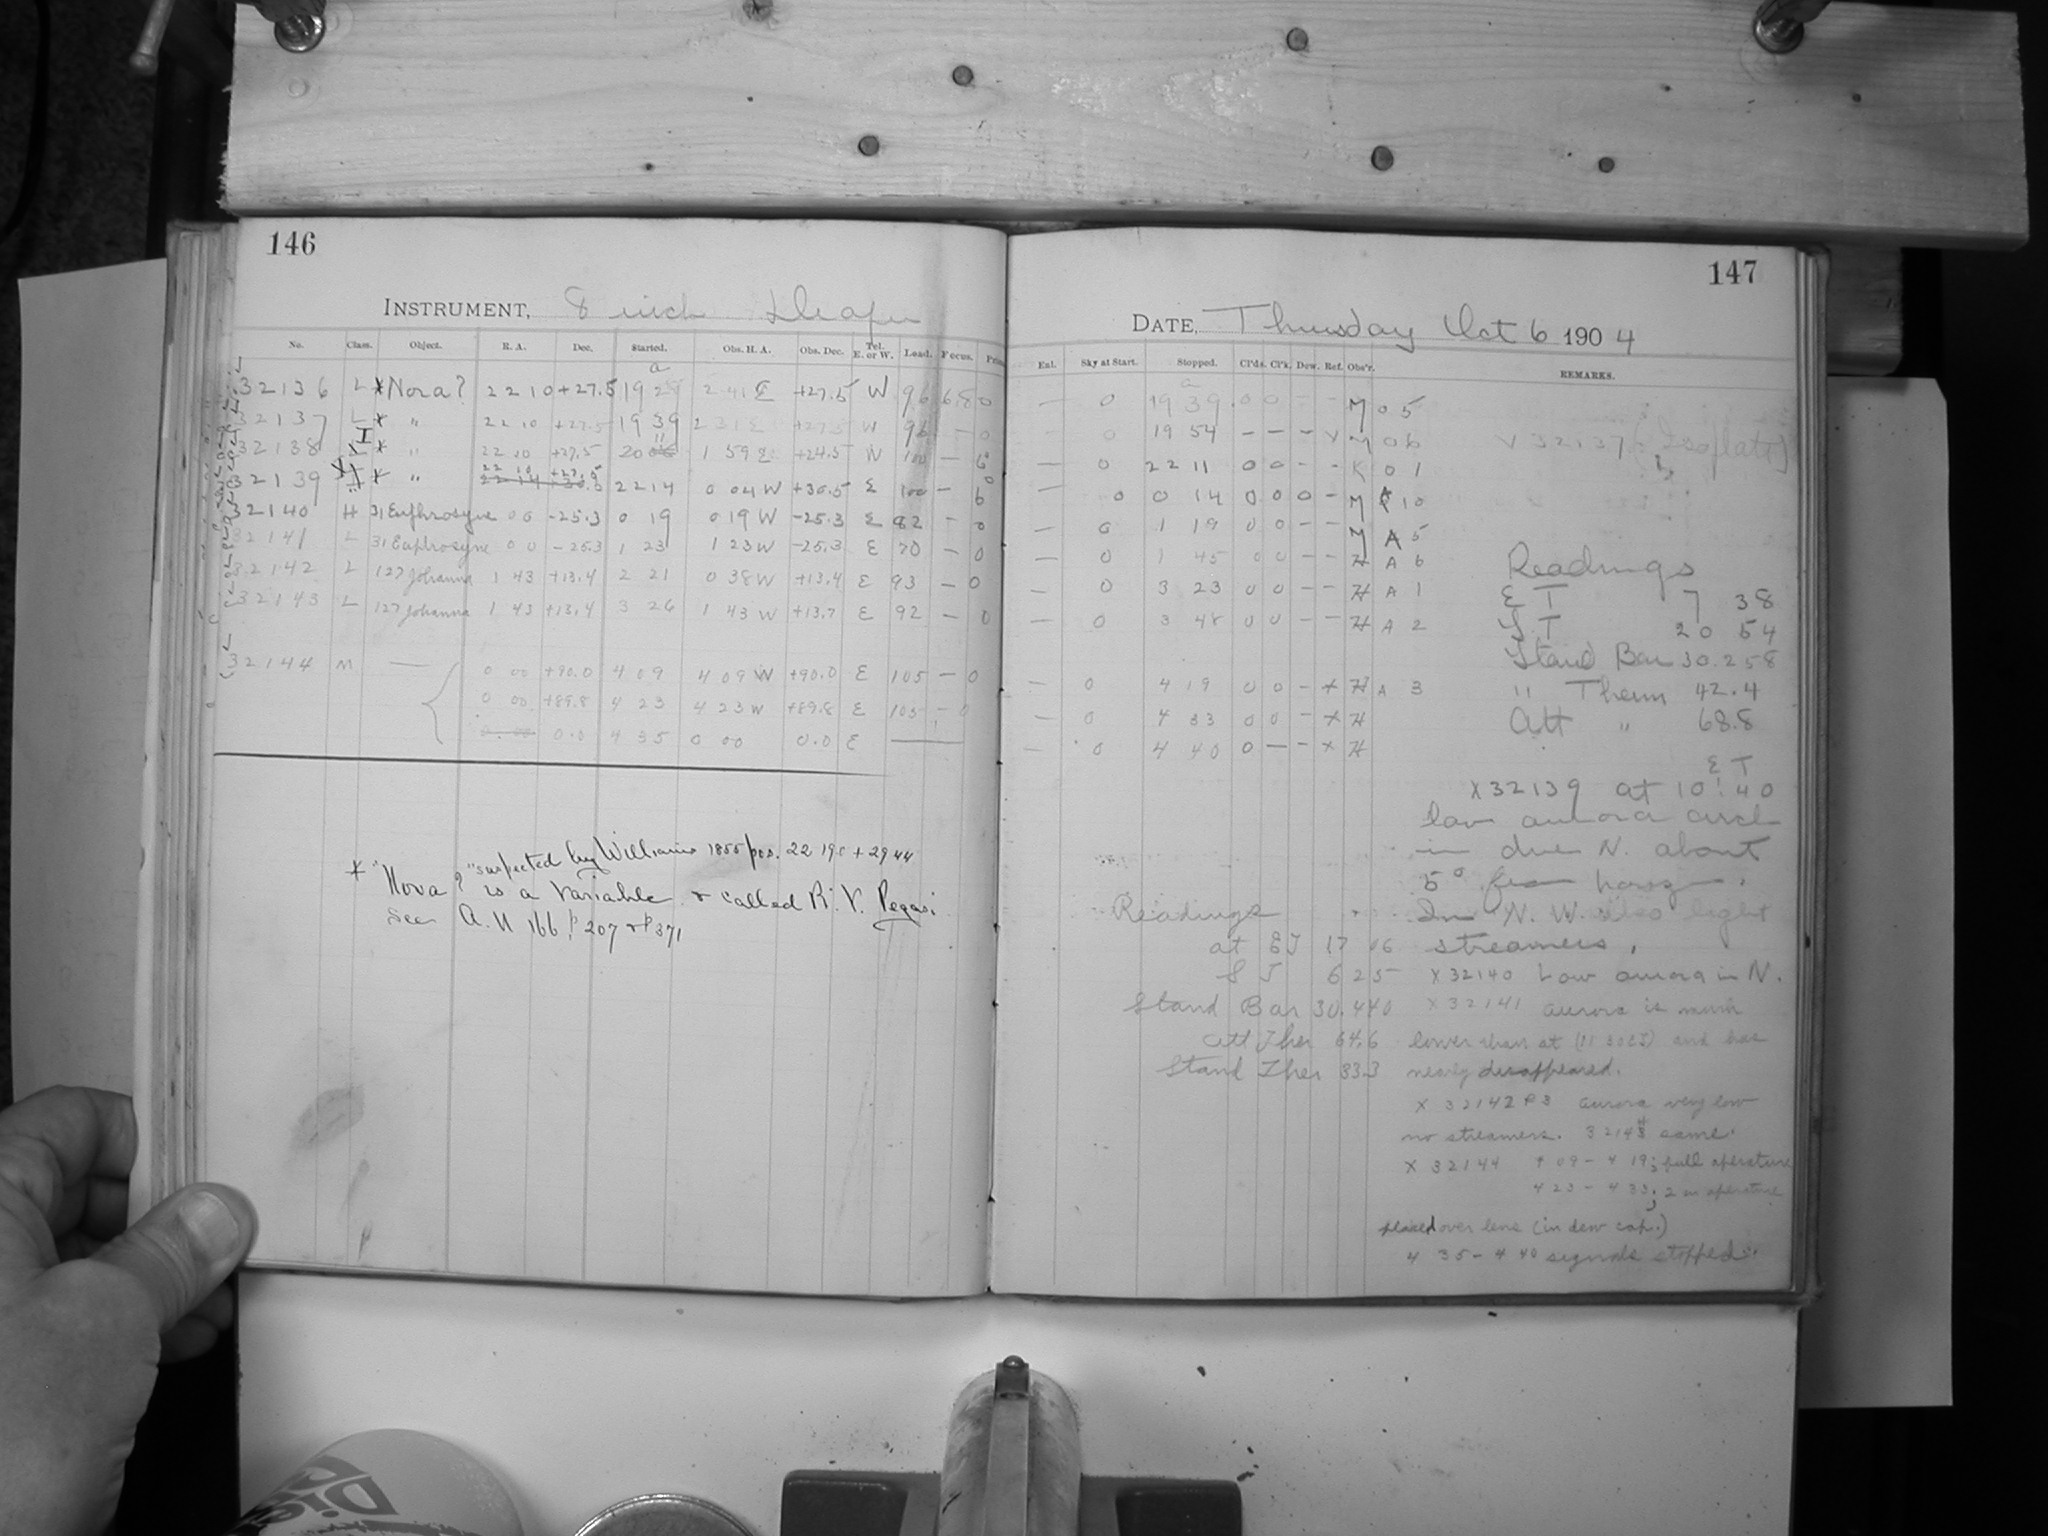 146
INSTRUMENT, 8 inch Draper
No. Class. Object. R. A. Dec. Started. Obs. H. A. Obs. Dec. Tel. E. or W. Load. Focus.
32136 L * Nova? 22 10 +27.5 19 2 41 E +27.5 W 96 6.8 0
32137 L * " 22 10 +27.5 19 39 2 31 E +27.5 W 96 — 0
32138 I * " 22 10 +27.5 20 1 59 E +24.5 W 100 — 6
32139 X * " 22 10 +27.5 22 14 0 04 W +30.5 E 100 — 6
32140 H 31 Euphrosyne 0 0 -25.3 0 19 0 19 W -25.3 E 82 — 0
32141 L 31 Euphrosyne 0 0 -25.3 1 23 1 23 W -25.3 E 70 — 0
32142 L 127 Johanna 1 43 +13.4 2 21 0 38 W +13.4 E 93 — 0
32143 L 127 Johanna 1 43 +13.4 3 26 1 43 W +13.7 E 92 — 0
32144 M — 0 00 +90.0 4 09 4 09 W +90.0 E 105 — 0
0 00 +89.8 4 23 4 23 W +89.8 E 105 — 0
0.00 0.0 4 35 0 00 0.0 E —
* "Nova?" suspected by Williams 1855 pos. 22 19.0 + 29 44
is a Variable & called R.V. Pegasi
See A.N 166 p 207 & p 371
147
DATE, Thursday Oct 6 1904
Enl. Sky at Start. Stopped. Cl'ds. Cl'k. Dew. Ref. Obs'r. REMARKS.
— 0 19 39 0 0 – – M 0 5
0 19 54 – – – v M 0 6 v 32137
— 0 22 11 0 0 – – K 0 1
— 0 0 14 0 0 0 – M A 10
— 0 1 19 0 0 – – M A 5
— 0 1 45 0 0 – – H A 6
— 0 3 23 0 0 – – H A 1
— 0 3 48 0 0 – – H A 2
— 0 4 19 0 0 – x H A 3
— 0 4 33 0 0 – x H
— 0 4 40 0 – – x H
Readings
E T 7 38
S T 20 54
Stand Bar 30.258
" Therm 42.4
Att " 68.8
E T
x 32139 at 10:40
low aurora arch
in due N. about
5° from horizon.
In N.W. also light
streamers.
x 32140 Low aurora in N.
x 32141 aurora is much
lower than at (11 30 ET) and has
nearly disappeared.
x 32142 & 3 aurora very low
no streamers. 32144 same.
x 32144 4 09 – 4 19; full aperature
4 23 – 4 33; 2 in aperature
placed over lens (in dew cap.)
4 35 – 4 40 signals stopped
Readings
at ET 17 06
S T 6 25
Stand Bar 30.440
Att Ther 64.6
Stand Ther 33.3